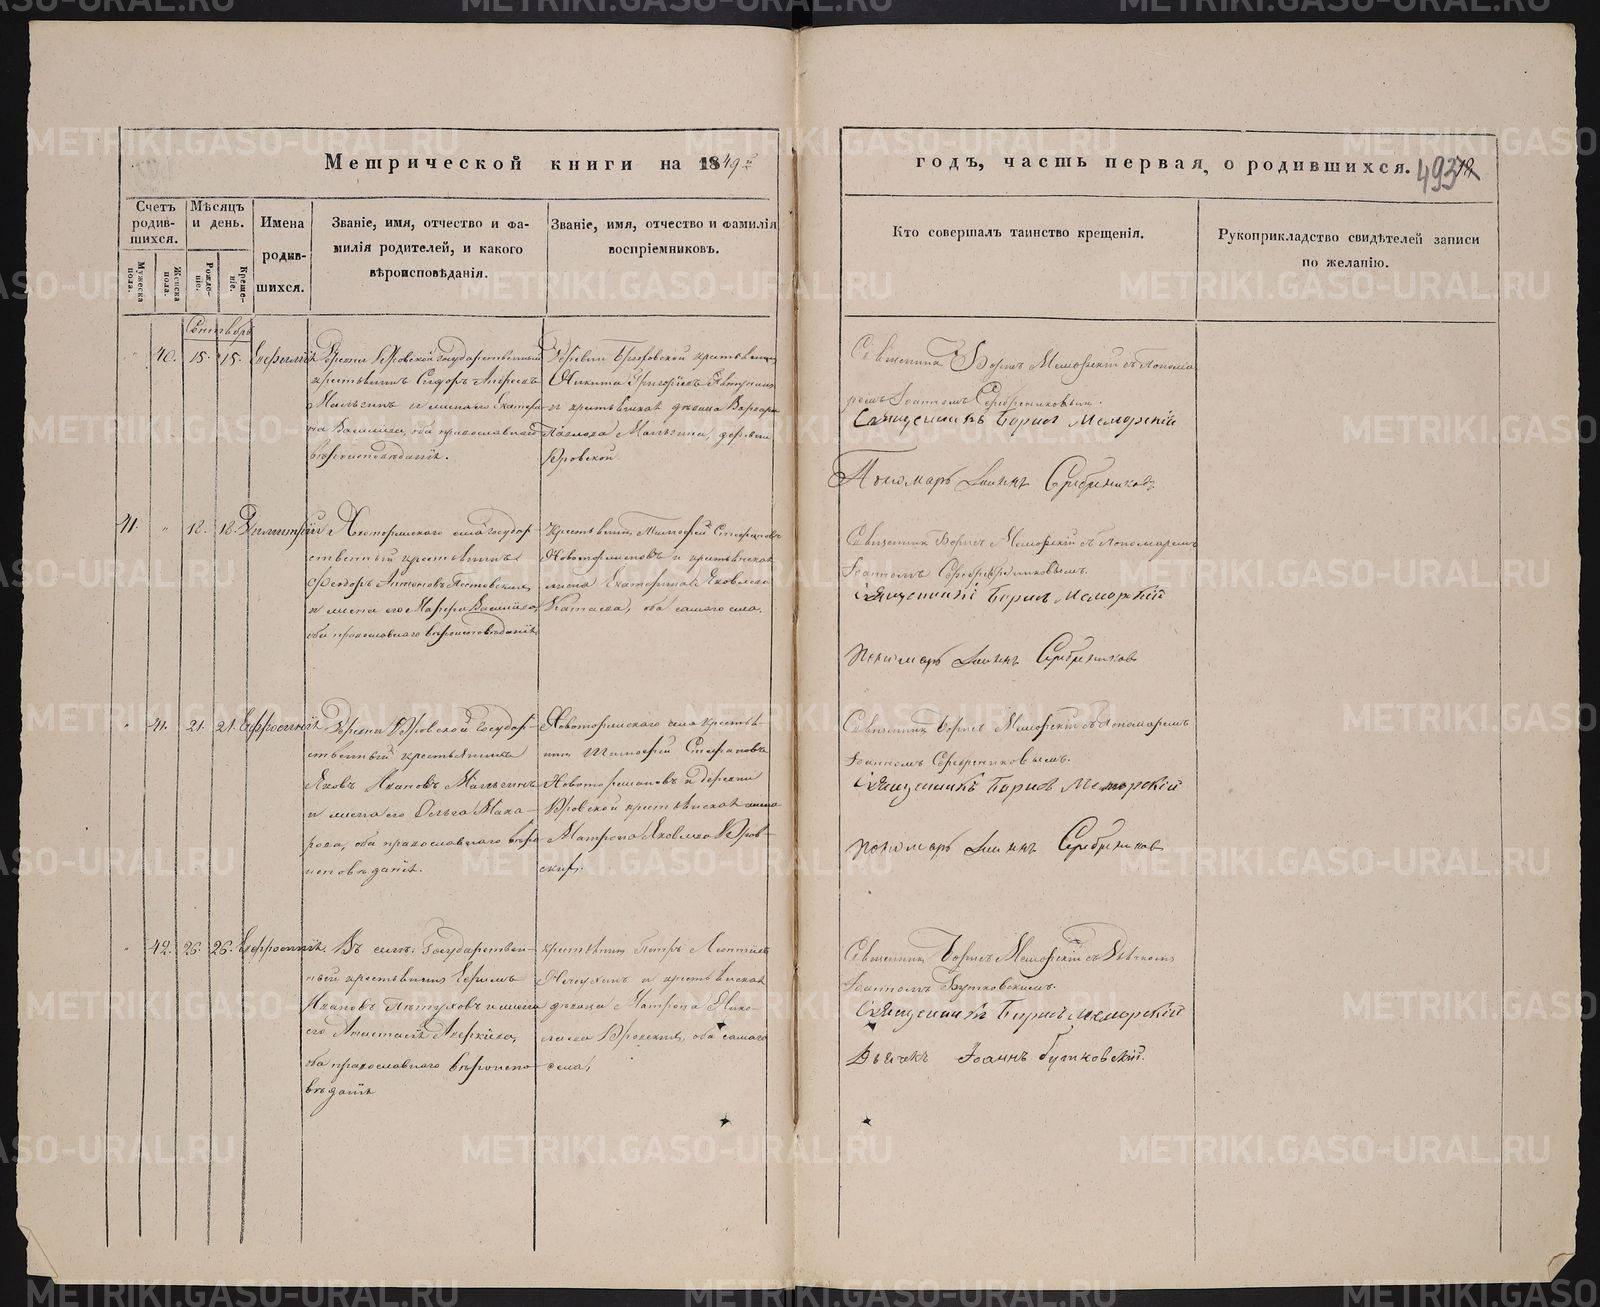 Метрической книги на 1849й
годъ, часть первая, о родившихся.
493
Счетъ родив-шихся.
Мѣсяцъ и день.
Имена родив-шихся.
Званіе, имя, отчество и фа-
милія родителей, и какого
вѣроисповѣданія.
Званіе, имя, отчество и фамилія
воспріемниковъ.
Кто совершалъ таинство крещенія.
Рукоприкладство свидѣтелей записи
по желанію.
Мужеска пола.
Женска пола.
Рожде-ніе.
Креще-ніе.
Сентябрь
40. 15. 15.
Деревни Юровской государственный
крестьянинъ Сидоръ
Мальгинъ и жена его Екатери-
на Васильева, оба православнаго
вѣроисповѣданія.
Деревни крестьянинъ
Никита Григорьевъ
и крестьянская дѣвица Варвара
Павлова Мальгина, деревни
Юровской.
Священникъ Борисъ Меморскій съ понома
ремъ Іоанномъ Серебрениковымъ.
Священникъ Борисъ Меморскій
Пономарь Іоаннъ Серебрениковъ
41. " 18. 18. Димитрій
Новоторжскаго села государ-
ственный крестьянинъ
Феодоръ Антоновъ
и жена его Марфа Васильева,
оба православнаго вѣроисповѣданія
Крестьянинъ Тимофей Стефановъ
и крестьянская
жена Екатерина Яковлева
оба самаго села.
Священникъ Борисъ Меморскій съ пономаремъ
Іоанномъ Серебрениковымъ.
Священникъ Борисъ Меморскій
Пономарь Іоаннъ Серебрениковъ
" 41. 21. 21. Ефросинія
Деревни Юровской государ-
ственный крестьянинъ
Яковъ Ивановъ Мальгинъ
и жена его Ольга Мака-
рова, оба православнаго вѣро
исповѣданія.
Новоторжскаго села крестья-
нинъ Тимофей Стефановъ
и деревни
Юровской крестьянская жена
Матрона Яковлева Юров-
скихъ.
Священникъ Борисъ Меморскій съ пономаремъ
Іоанномъ Серебрениковымъ.
Священникъ Борисъ Меморскій
Пономарь Іоаннъ Серебрениковъ
" 42. 26. 26. Ефросинія.
Въ селѣ. Государствен-
ный крестьянинъ Ефимъ
Ивановъ Пѣтуховъ и жена
его Анастасія
оба православнаго вѣроиспо-
вѣданія
крестьянинъ Петръ Леонтьевъ
и крестьянская
дѣвица Матрона Нико-
лаева Юровскихъ, оба самаго
села.
Священникъ Борисъ Меморскій съ дьячкомъ
Іоанномъ Бутковскимъ.
Священникъ Борисъ Меморскій
Дьячекъ Іоаннъ Бутковскій.
METRIKI.GASO-URAL.RU